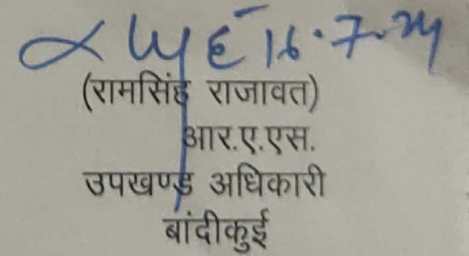 16.7.24
(रामसिंह राजावत)
आर.ए.एस.
उपखण्ड अधिकारी
बांदीकुई